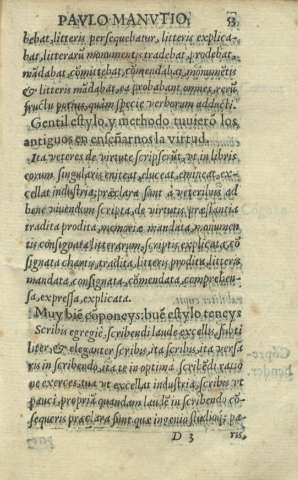 PAVLO MANVTIO. 53.
bebat, litteris persequebatur, litteris explica-
bat, litterarũ monumentis tradebat, prodebat,
mãdabat, cõmittebat, cõmendabat, monumẽtis
& litteris mãdabat, ea probabant omnes, rerũ
fructu potius, quàm specie verborum adducti.
Gentil estylo, y methodo tuuierõ los
antiguos en enseñarnos la virtud.
Ita veteres de virtute scripserũt, vt in libris
eorum singularis eniteat, eluceat, emineat, ex-
cellat industria; præclara sunt à veteribus ad
bene viuendum scripta, de virtutis præstantia
tradita prodita, memoriæ mandata, monumen
tis consignata litterarum, scriptis explicata, cõ
signata chartis, tradita, litteris prodita, litteris
mandata, consignata, cõmendata, comprehen-
sa, expressa, explicata.
Muy biẽ cõponeys; buẽ estylo teneys
Scribis egregiè, scribendi laude excellis, subti
liter, & eleganter scribis, ita scribis, ita versa
ris in scribendo, ita te in optima scribẽdi ratio
ne exerces, tua vt excellat industria, scribis vt
pauci, propriã quandam laudẽ in scribendo cõ-
sequeris præclara sunt quæ ingenio pa-
D 3 ris,